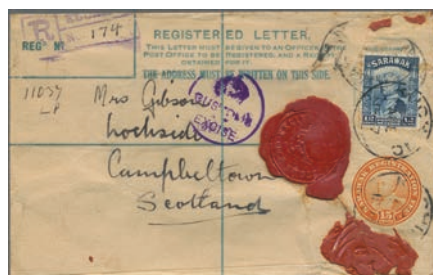 R
No. 174
REGISTERED LETTER.
REGD No
THIS LETTER MUST BE GIVEN TO AN OFFICER OF THE
POST OFFICE TO BE REGISTERED, AND A RECEIPT
OBTAINED FOR IT.
THE ADDRESS MUST BE WRITTEN ON THIS SIDE.
SARAWAK
11039
LP
Mrs Gibson
Lochside
Campbeltown
Scotland
CUSTOMS
EXCISE
15